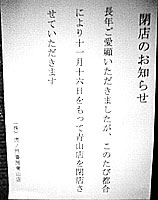 閉店のお知らせ
長年ご愛顧いただきましたが、このたび都合
により十一月十六日をもって青山店を閉店さ
せていただきます